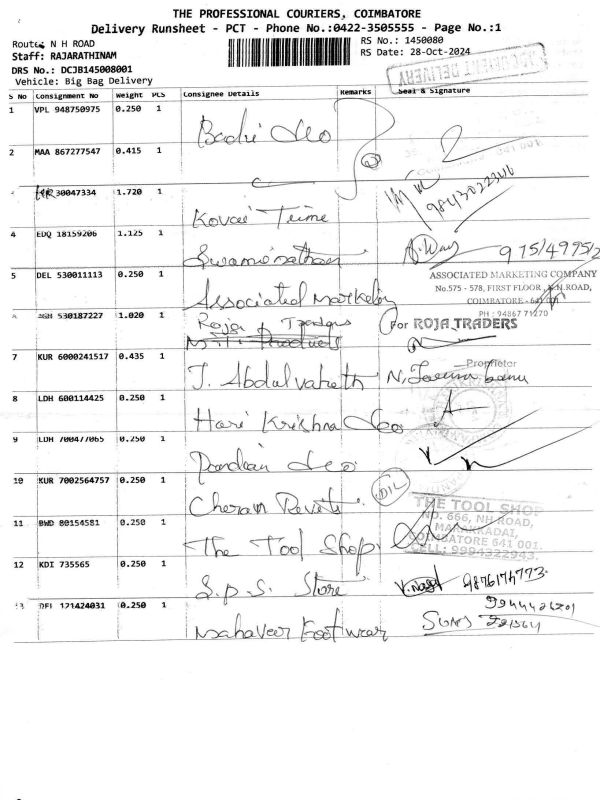 THE PROFESSIONAL COURIERS, COIMBATORE
Delivery Runsheet - PCT - Phone No.:0422-3505555 - Page No.:1
Route: N H ROAD
RS No.: 1450080
Staff: RAJARATHINAM
RS Date: 28-Oct-2024
DRS No.: DCJB145008001
Vehicle: Big Bag Delivery
DOCUMENT DELIVERY
S No Consignment No Weight PCS Consignee Details Remarks Seal & Signature
1 VPL 948750975 0.250 1
2 MAA 867277547 0.415 1
30047334 1.720 1 Kovai Trime 9843022346
4 EDQ 18159206 1.125 1 Swaminathan
5 DEL 530011113 0.250 1 Associated Marketing
ASSOCIATED MARKETING COMPANY
No.575 - 578, FIRST FLOOR, N.H.ROAD,
COIMBATORE - 641 001
PH : 94867 71270
530187227 1.020 1 Roja Traders
For ROJA TRADERS
Proprietor
7 KUR 6000241517 0.435 1
8 LDH 600114425 0.250 1 Hari Krishna
9 LDH 700477065 0.250 1 Pandian
10 KUR 7002564757 0.250 1 Cheran
11 BWD 80154581 0.250 1 The Tool Shop
THE TOOL SHOP
NO. 666, NH ROAD,
COIMBATORE 641 001.
CELL: 9994322943.
12 KDI 735565 0.250 1 S.P.S. Store
13 DEL 121424031 0.250 1 Mahaveer Footwear